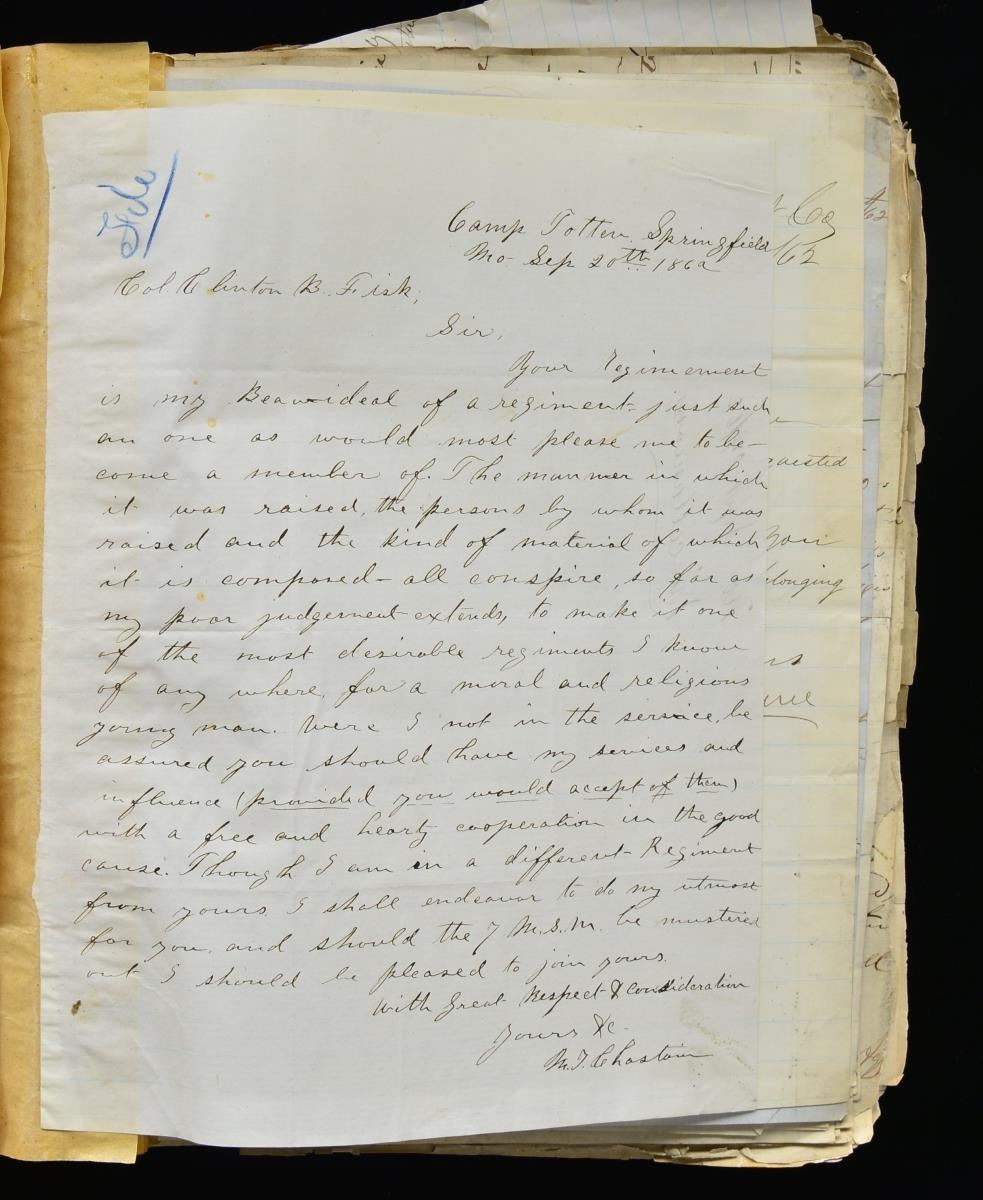 File
Camp Totten, Springfield
Mo. Sep 20th 1862
Col. Clinton B. Fisk,
Sir,
Your Regimement
is my Beau-ideal of a regiment - just such
an one as would most please me to be-
come a member of. The manner in which
it was raised, the persons by whom it was
raised and the kind of material of which
it is composed - all conspire, so far as
my poor judgement extends, to make it one
of the most desirable regiments I know
of any where, for a moral and religious
young man. Were I not in the service, be
assured you should have my services and
influence (provided you would accept of them)
with a free and hearty cooperation in the good
cause. Though I am in a different Regiment
from yours, I shall endeavor to do my utmost
for you, and should the 7 M.S.M. be mustered
out I should be pleased to join yours.
With Great Respect & consideration
Yours &c.
M.J. Chastain
Co
/62
uested
you
elonging